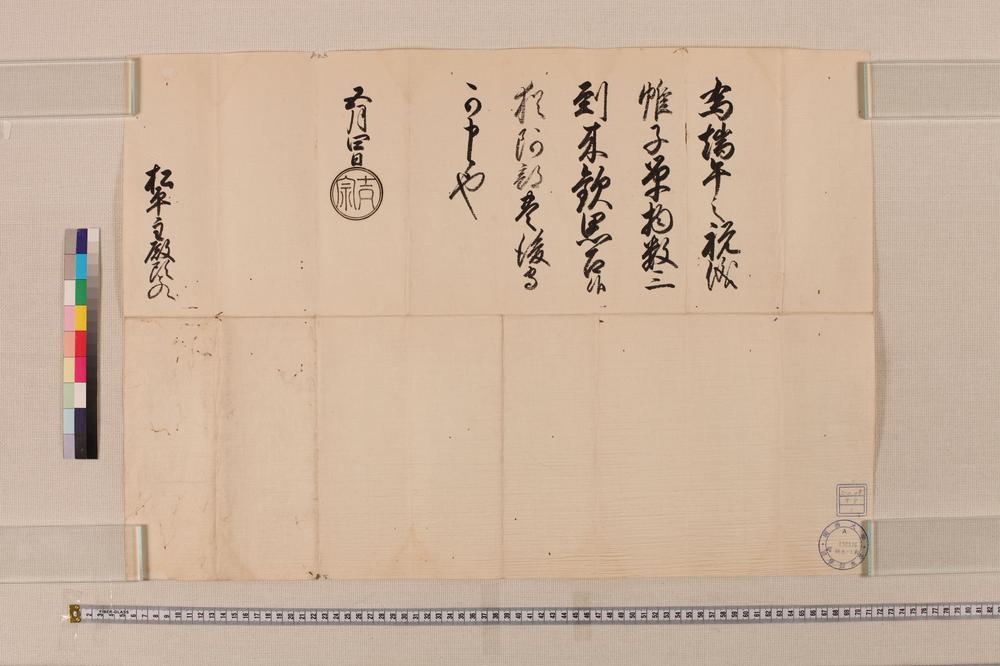 為端午之祝儀
帷子単物数二
到来歓思召候
猶阿部豊後守
可申也
五月四日
吉宗
松平主殿頭とのへ